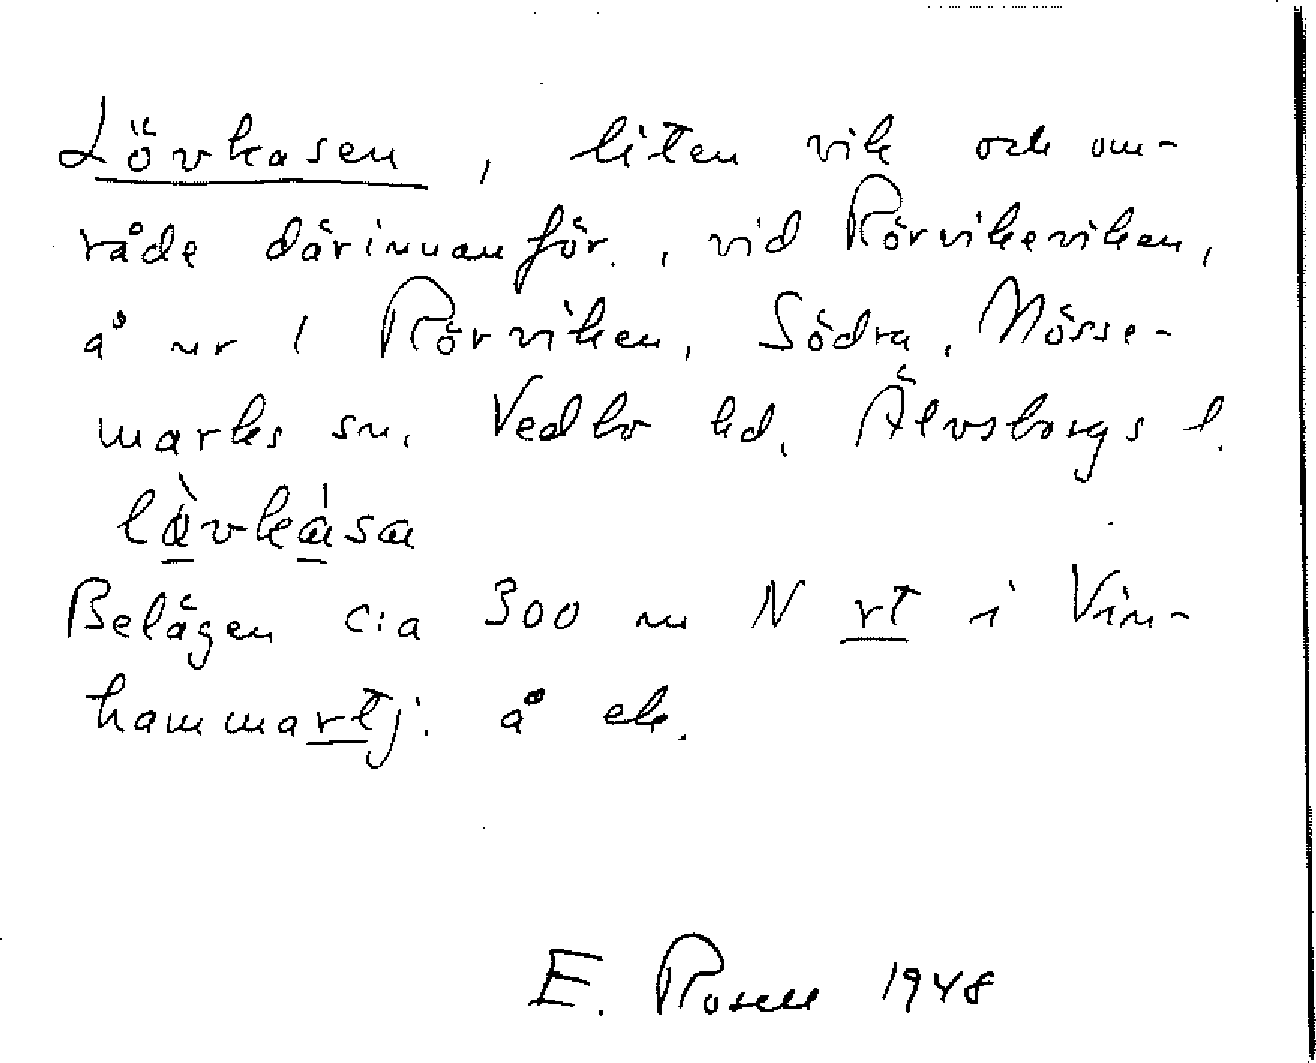 Lövkasen, liten vik och om-
råde därinnanför., vid Rörvikeviken,
å nr 1 Rörviken, Södra, Nösse-
marks sn. Vedbo hd. Älvsborgs l.
Belägen c:a 300 m N rt i Vin-
hammartj. å ek.
E. Rosell 1948